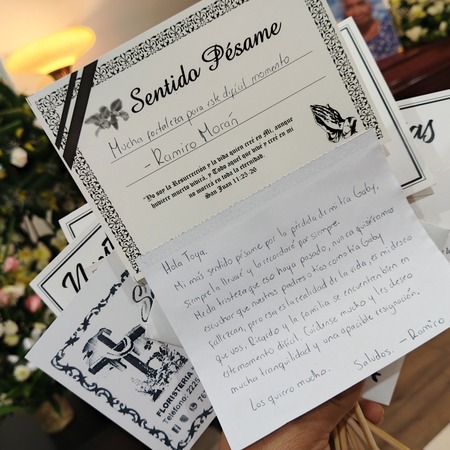 Sentido Pésame
Mucha fortaleza para este dificil momento
- Ramiro Morán
"Yo soy la Resurrección y la vida quien cree en Mi, aunque
hubiere muerto vivirá, y Todo aquel que vive y creé en mi
no morirá en toda la eternidad.
San Juan 11:25-26
Hola Toya.
Mi más sentido pésame por la pérdida de mi tía Gaby,
siempre la llevaré y la recordaré por siempre.
Me da tristeza que eso haya pasado, nunca quisiéramos
escuchar que nuestros padres o tíos como tía Gaby
fallezcan, pero esa es la realidad de la vida, es mi deseo
que vos, Ricardo y la familia se encuentren bien en
este momento difícil. Cuídense mucho y les deseo
mucha tranquilidad y una apacible resignación.
Los quiero mucho. Saludos. - Ramiro
FLORISTERIA
Teléfono: 222
as